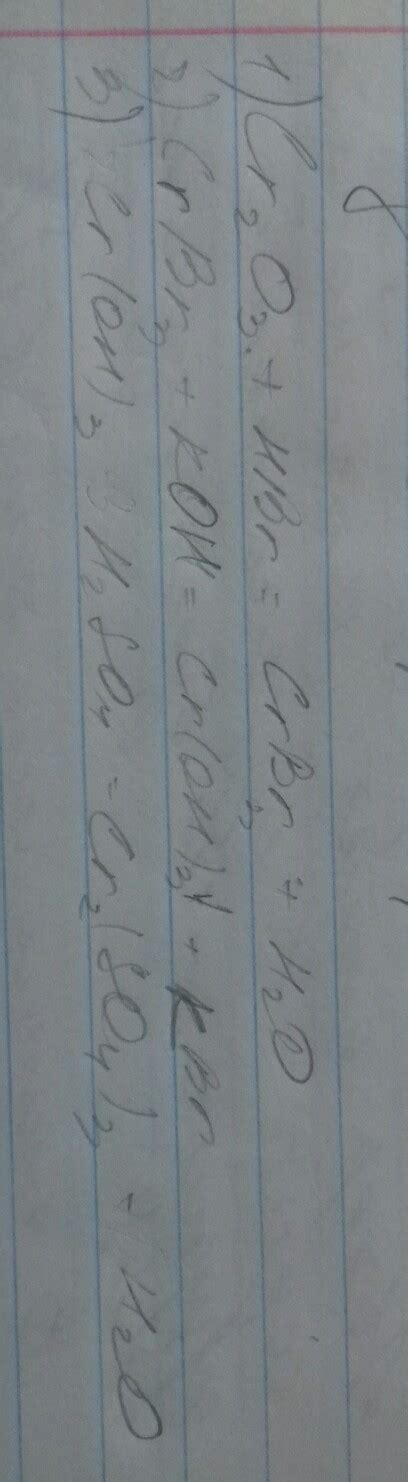 1) Cr₂O₃ + HBr = CrBr₃ + H₂O
2) CrBr₃ + KOH = Cr(OH)₃↓ + KBr
3) Cr(OH)₃ + H₂SO₄ = Cr₂(SO₄)₃ + H₂O